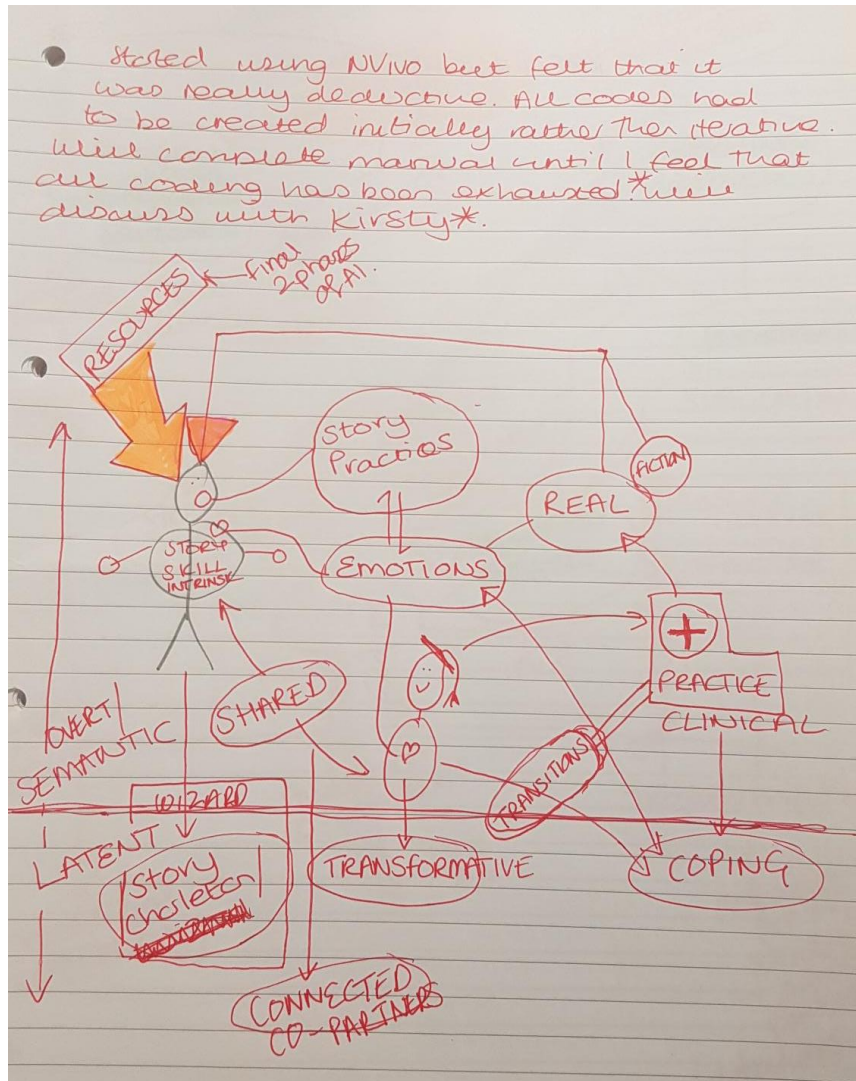 Started using NVIVO but felt that it
was really deductive. All codes had
to be created initially rather then iterative.
Will complete manual until I feel that
all coding has been exhausted *will
discuss with Kirsty*.
final
2 phases
of AI.
RESOURCES
Story
Practices
FICTION
REAL
STORY
SKILL
INTRINSIK
EMOTIONS
PRACTICE
CLINICAL
SHARED
OVERT/
SEMANTIC
TRANSITIONS
WIZARD
LATENT
Story
charleton
TRANSFORMATIVE
COPING
CONNECTED
CO-PARTNERS